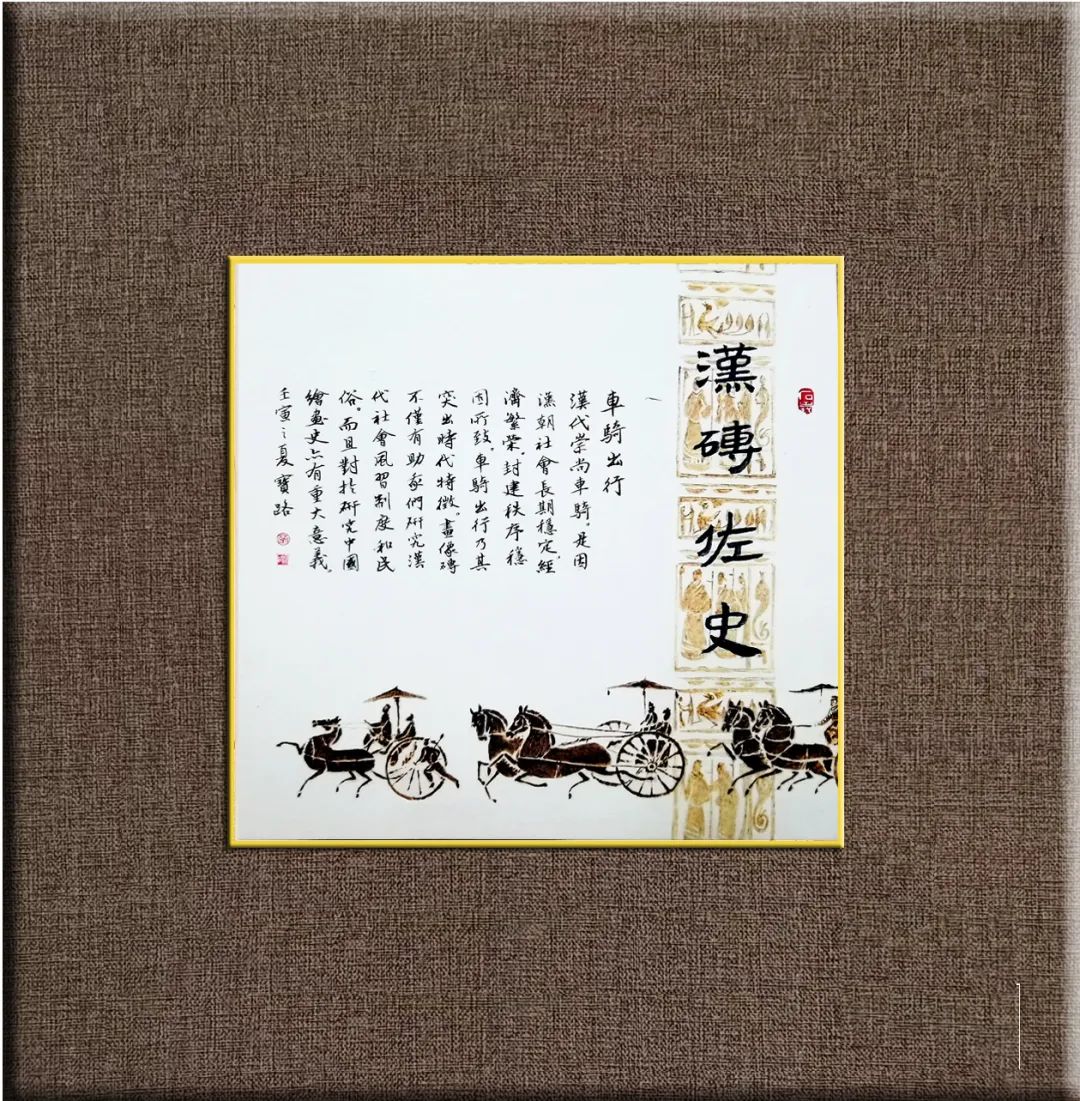 漢磚佐史
車騎出行
漢代崇尚車騎。是因
漢朝社會長期穩定，經
濟繁榮，封建秩序穩
固所致。車騎出行乃其
突出時代特徵。畫像磚
不僅有助我們研究漢
代社會風習制度和民
俗。而且對於研究中國
繪畫史亦有重大意義。
壬寅之夏寶路